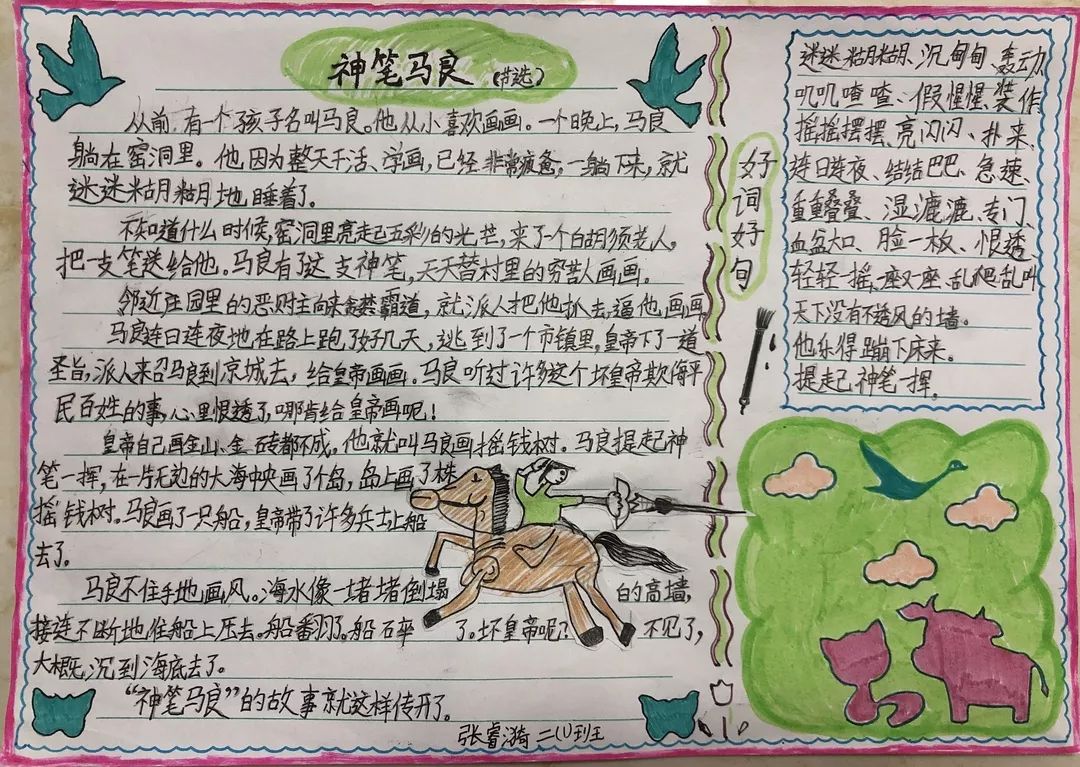 神笔马良(节选)
从前,有一个孩子名叫马良。他从小喜欢画画。一个晚上,马良
躺在窑洞里。他因为整天干活、学画,已经非常疲惫,一躺下来,就
迷迷糊糊地睡着了。
不知道什么时候,窑洞里亮起五彩的光芒,来了个白胡须老人,
把一支笔送给他。马良有了这支神笔,天天替村里的穷苦人画画。
邻近庄园里的恶财主向来贪婪霸道,就派人把他抓去,逼他画画。
马良连日连夜地在路上跑了好几天,逃到了一个市镇里。皇帝下了一道
圣旨,派人来召马良到京城去,给皇帝画画。马良听过许多这个坏皇帝欺侮平
民百姓的事,心里恨透了,哪肯给皇帝画呢!
皇帝自己画金山、金砖都不成。他就叫马良画摇钱树。马良提起神
笔一挥,在一片无边的大海中央画了个岛,岛上画了株
摇钱树。马良画了一只船,皇帝带了许多兵士上船
去了。
马良不住手地画风。海水像一堵堵倒塌的高墙,
接连不断地往船上压去。船翻了。船碎了。坏皇帝呢?不见了,
大概沉到海底去了。
“神笔马良”的故事就这样传开了。
张睿漪 二(1)班
好词好句
迷迷糊糊、沉甸甸、轰动
叽叽喳喳、假惺惺、装作
摇摇摆摆、亮闪闪、扑来
连日连夜、结结巴巴、急速、
重重叠叠、湿漉漉、专门、
血盆大口、脸一板、恨透
轻轻一摇、一座又一座、乱爬乱叫
天下没有不透风的墙。
他乐得蹦下床来。
提起神笔一挥。